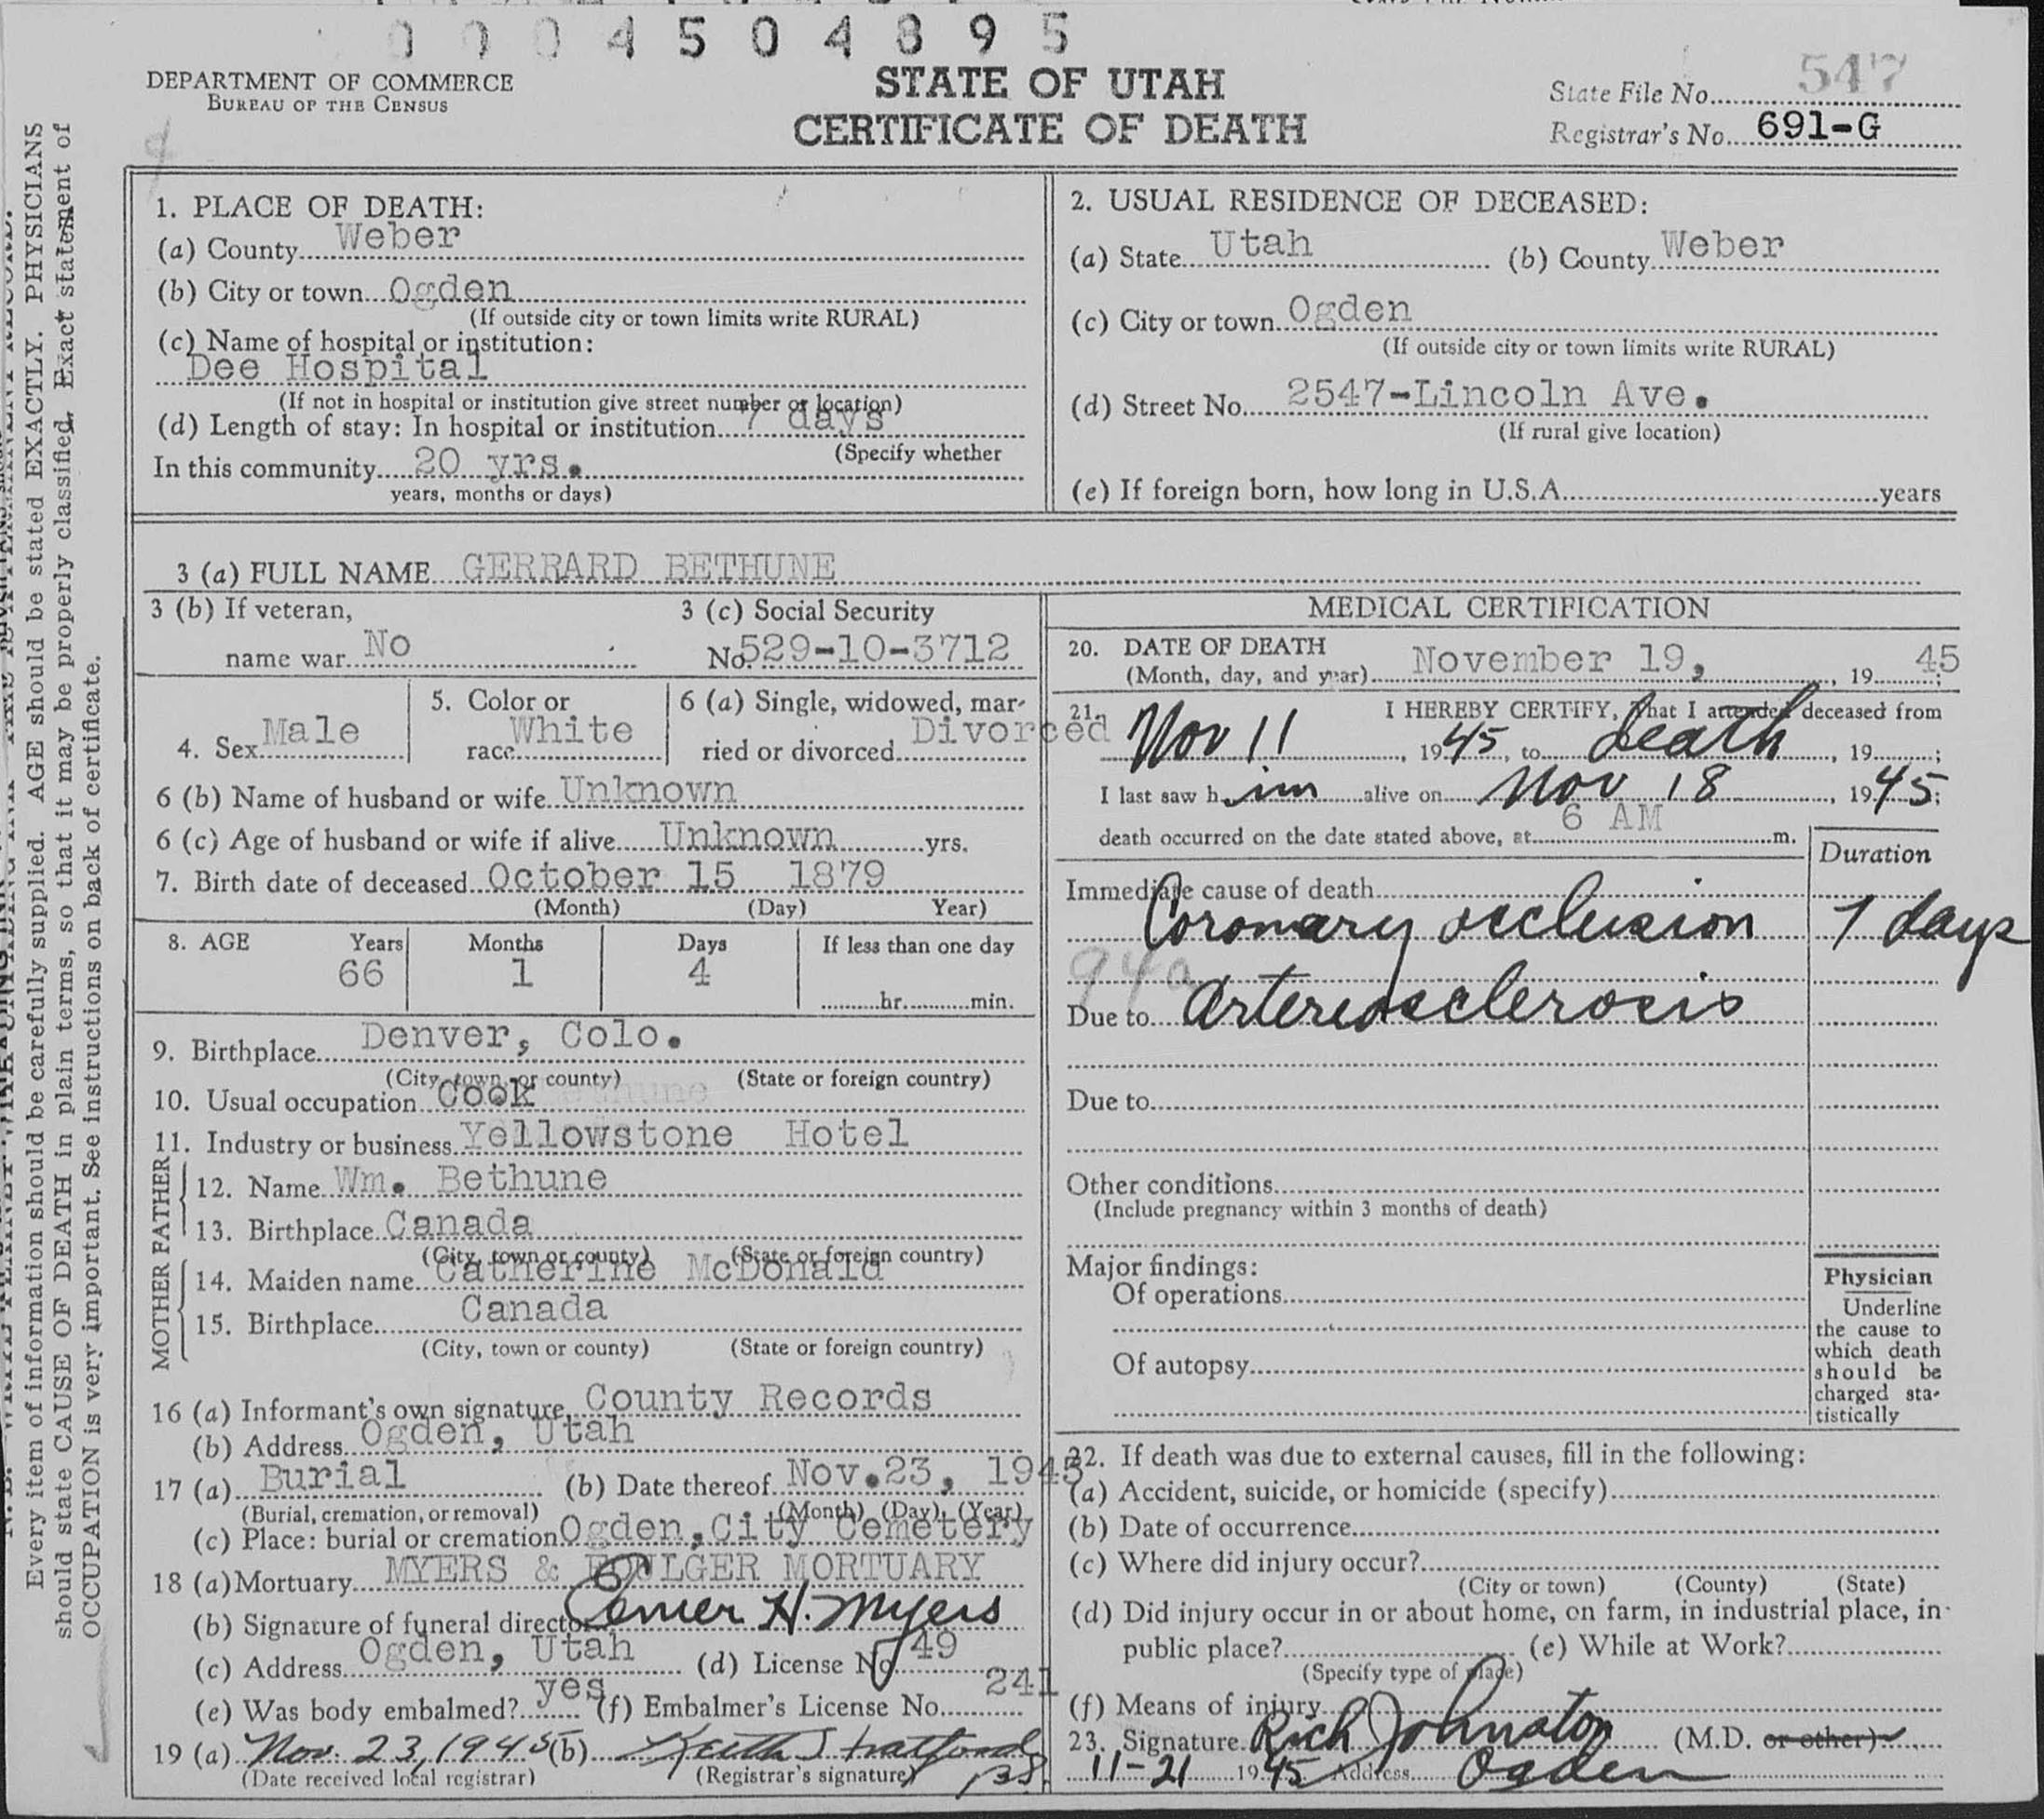 0 0 0 4 5 0 4 8 9 5
DEPARTMENT OF COMMERCE
BUREAU OF THE CENSUS
STATE OF UTAH
CERTIFICATE OF DEATH
State File No. 547
Registrar's No. 691-G
Every item of information should be carefully supplied. AGE should be stated EXACTLY. PHYSICIANS
should state CAUSE OF DEATH in plain terms, so that it may be properly classified. Exact statement of
OCCUPATION is very important. See instructions on back of certificate.
1. PLACE OF DEATH:
(a) County Weber
(b) City or town Ogden
(If outside city or town limits write RURAL)
(c) Name of hospital or institution:
Dee Hospital
(If not in hospital or institution give street number or location)
(d) Length of stay: In hospital or institution 7 days
(Specify whether
In this community 20 yrs.
years, months or days)
2. USUAL RESIDENCE OF DECEASED:
(a) State Utah (b) County Weber
(c) City or town Ogden
(If outside city or town limits write RURAL)
(d) Street No. 2547-Lincoln Ave.
(If rural give location)
(e) If foreign born, how long in U.S.A. years
3 (a) FULL NAME GERRARD BETHUNE
3 (b) If veteran, 3 (c) Social Security
name war No No. 529-10-3712
4. Sex Male 5. Color or race White 6 (a) Single, widowed, mar-
ried or divorced Divorced
6 (b) Name of husband or wife Unknown
6 (c) Age of husband or wife if alive Unknown yrs.
7. Birth date of deceased October 15 1879
(Month) (Day) Year)
8. AGE Years Months Days If less than one day
66 1 4 hr. min.
9. Birthplace Denver, Colo.
(City, town, or county) (State or foreign country)
10. Usual occupation Cook
11. Industry or business Yellowstone Hotel
FATHER
12. Name Wm. Bethune
13. Birthplace Canada
(City, town or county) (State or foreign country)
MOTHER
14. Maiden name Catherine McDonald
15. Birthplace Canada
(City, town or county) (State or foreign country)
16 (a) Informant's own signature County Records
(b) Address Ogden, Utah
17 (a) Burial (b) Date thereof Nov.23, 1945
(Burial, cremation, or removal) (Month) (Day) (Year)
(c) Place: burial or cremation Ogden,City Cemetery
18 (a) Mortuary MYERS & FOULGER MORTUARY
(b) Signature of funeral director H. Myers
(c) Address Ogden, Utah (d) License No. 49
(e) Was body embalmed? yes (f) Embalmer's License No. 241
19 (a) Nov. 23, 1945 (b) Keith Stratford
(Date received local registrar) (Registrar's signature)
MEDICAL CERTIFICATION
20. DATE OF DEATH
(Month, day, and year) November 19, , 19 45;
21. I HEREBY CERTIFY, That I attended deceased from
Nov 11 , 19 45, to death , 19 ;
I last saw h im alive on Nov 18 , 19 45;
death occurred on the date stated above, at 6 AM m.
Duration
Immediate cause of death
Coronary occlusion 7 days
94a
Due to arteriosclerosis
Due to
Other conditions
(Include pregnancy within 3 months of death)
Major findings:
Of operations
Of autopsy
Physician
Underline
the cause to
which death
should be
charged sta-
tistically
22. If death was due to external causes, fill in the following:
(a) Accident, suicide, or homicide (specify)
(b) Date of occurrence
(c) Where did injury occur?
(City or town) (County) (State)
(d) Did injury occur in or about home, on farm, in industrial place, in
public place? (e) While at Work?
(Specify type of place)
(f) Means of injury
23. Signature Rich Johnston (M.D. or other)
11-21 19 45 Address Ogden